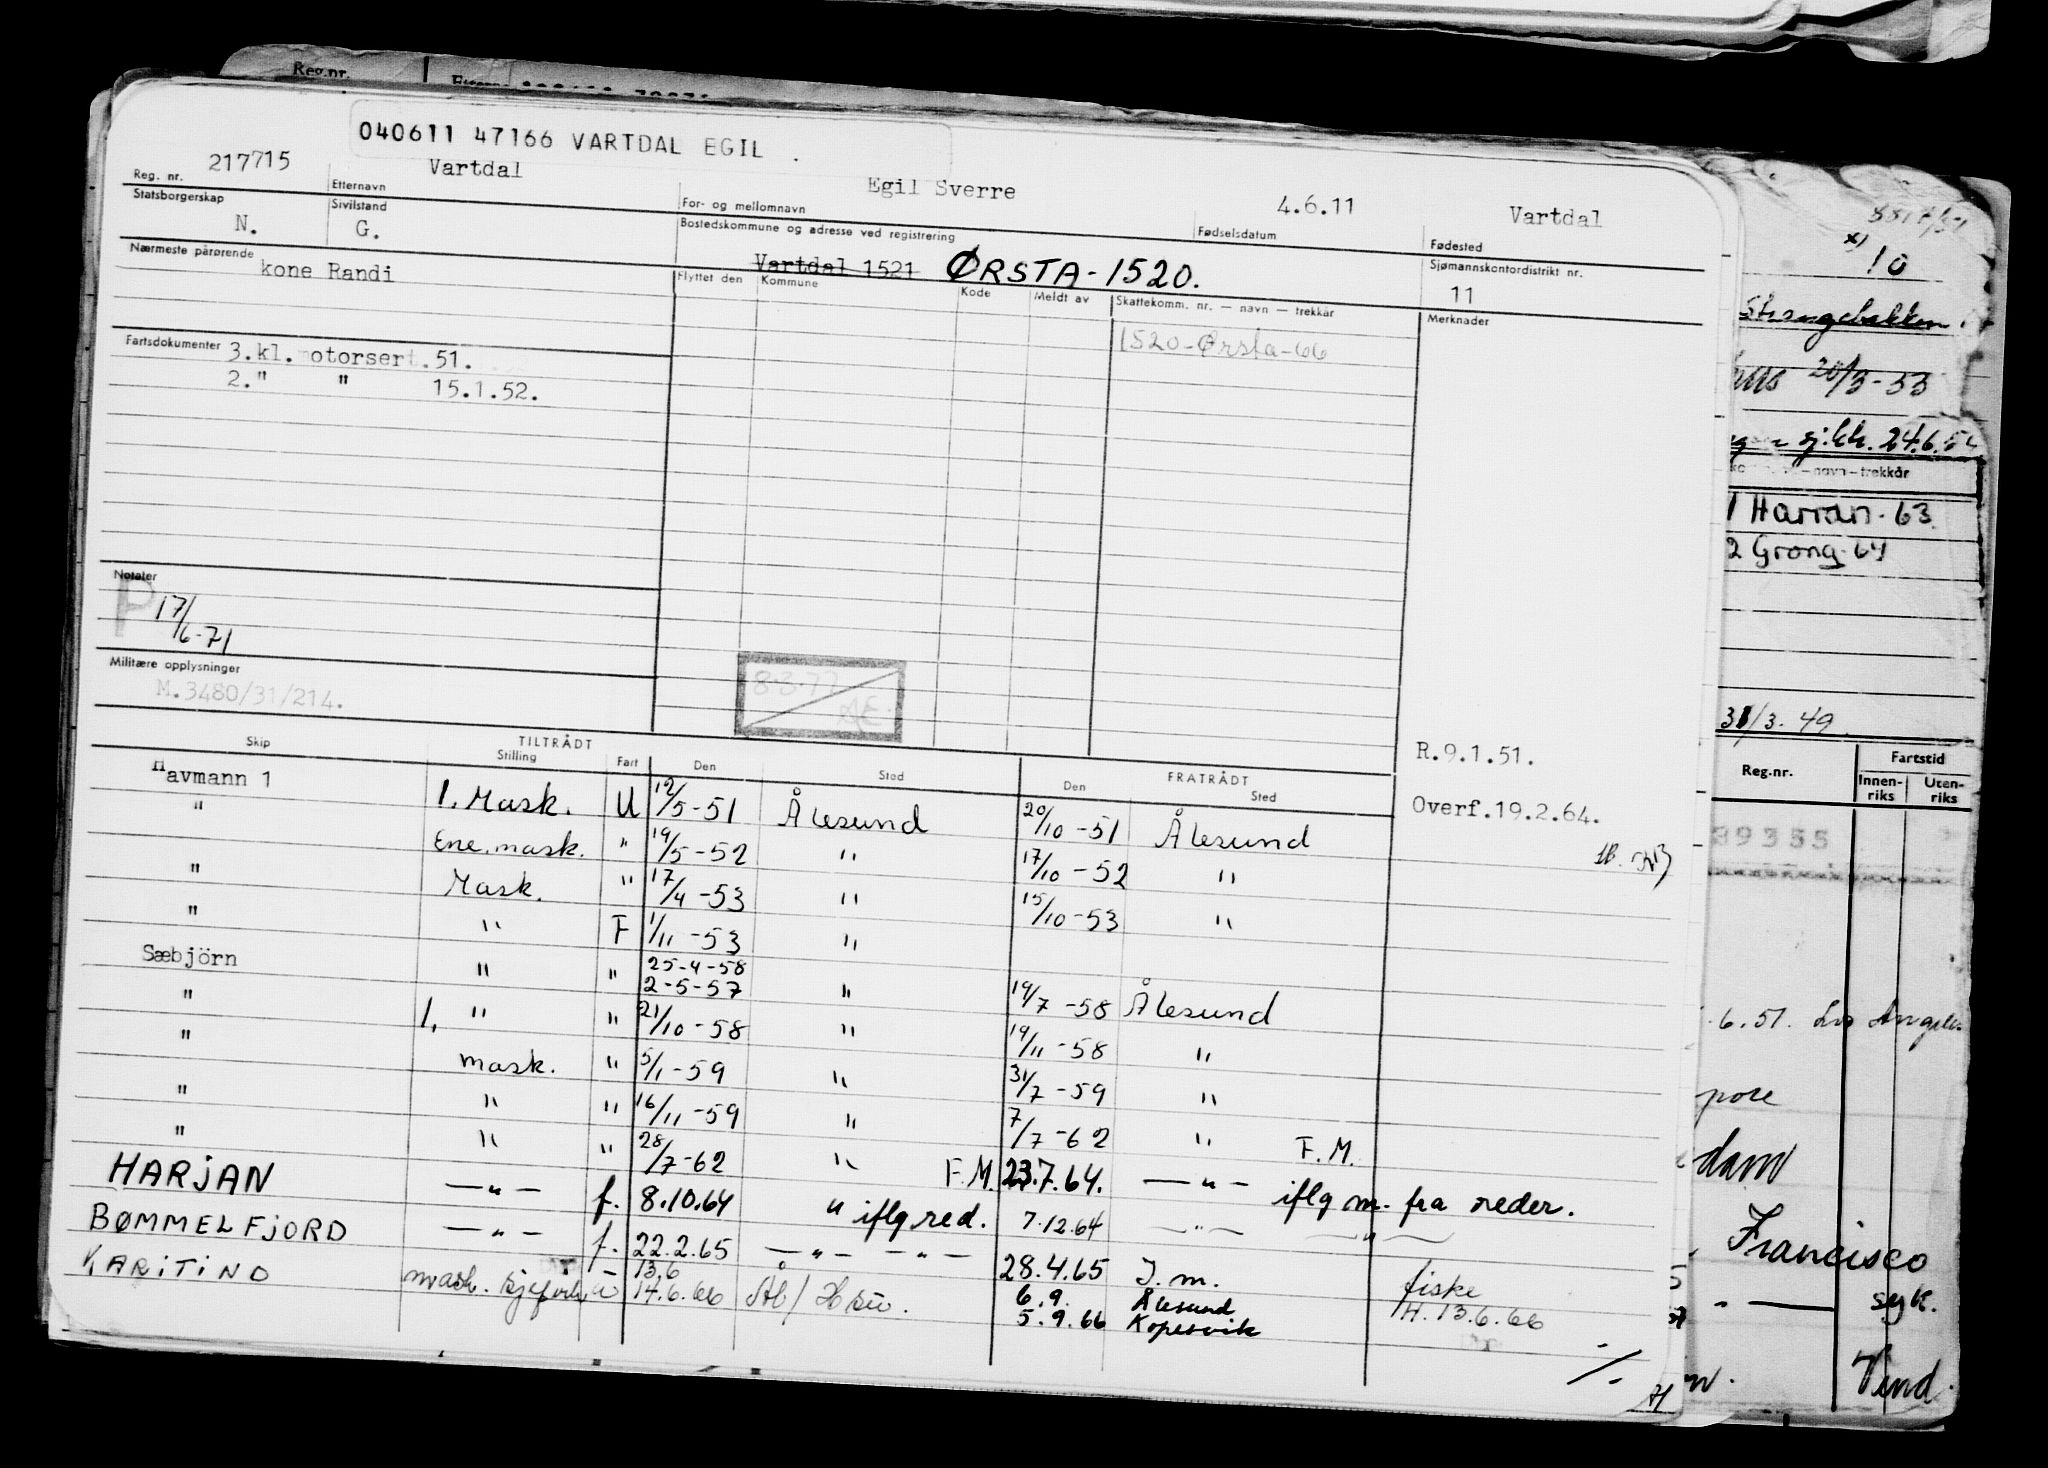 Reg.nr.
040611 47166 VARTDAL EGIL
217715 Vartdal Egil Sverre 4.6.11 Vartdal
Reg. nr. Etternavn For- og mellomnavn Fødselsdatum Fødested
Statsborgerskap Sivilstand Bostedskommune og adresse ved registrering Sjømannskontordistrikt nr.
N. G. Vartdal 1521 ØRSTA-1520. 11
Nærmeste pårørende Flyttet den Kommune Kode Meldt av Skattekomm. nr. — navn — trekkår Merknader
kone Randi
1520-Ørsta-66
Fartsdokumenter 3.kl.motorsert.51.
2." " 15.1.52.
Notater
P 17/6-71
Militære opplysninger
M.3480/31/214.
8.3.77
AE
R.9.1.51.
Overf.19.2.64.
Skip TILTRÅDT Stilling Fart Den Sted FRATRÅDT Den Sted
Havmann 1 1. Mask. U 12/5-51 Ålesund 20/10-51 Ålesund
" Ene.mask. " 19/5-52 " 17/10-52 "
" Mask. " 17/4-53 " 15/10-53 "
" " F 1/11-53 "
Sæbjörn " " 25-4-58
2-5-57 " 19/7-58 Ålesund
" 1. " " 21/10-58 " 19/11-58 "
" mask. " 5/1-59 " 31/7-59 "
" " " 16/11-59 " 7/7-62 " F.M.
" " " 28/7-62 " F.M. 23.7.64. —"—
HARJAN —"— f. 8.10.64 " iflg red. 7.12.64 —"— iflg m. fra reder.
BØMMELFJORD —"— f. 22.2.65 —"— —"— 28.4.65 J.m.
KARITIND mask. 13.6 14.6.66 6.9. Ålesund fiske
5.9.66 Kopervik H.13.6.66
10
20/3-53
sj.kk. 24.6.
navn — trekkår
1 Harran-63
2 Grong-64
31/3.49
Reg.nr. Fartstid
Innen-riks Uten-riks
39355
.6.51. Los Angeles
pore
dam
Francisco
" — syk.
Vend.